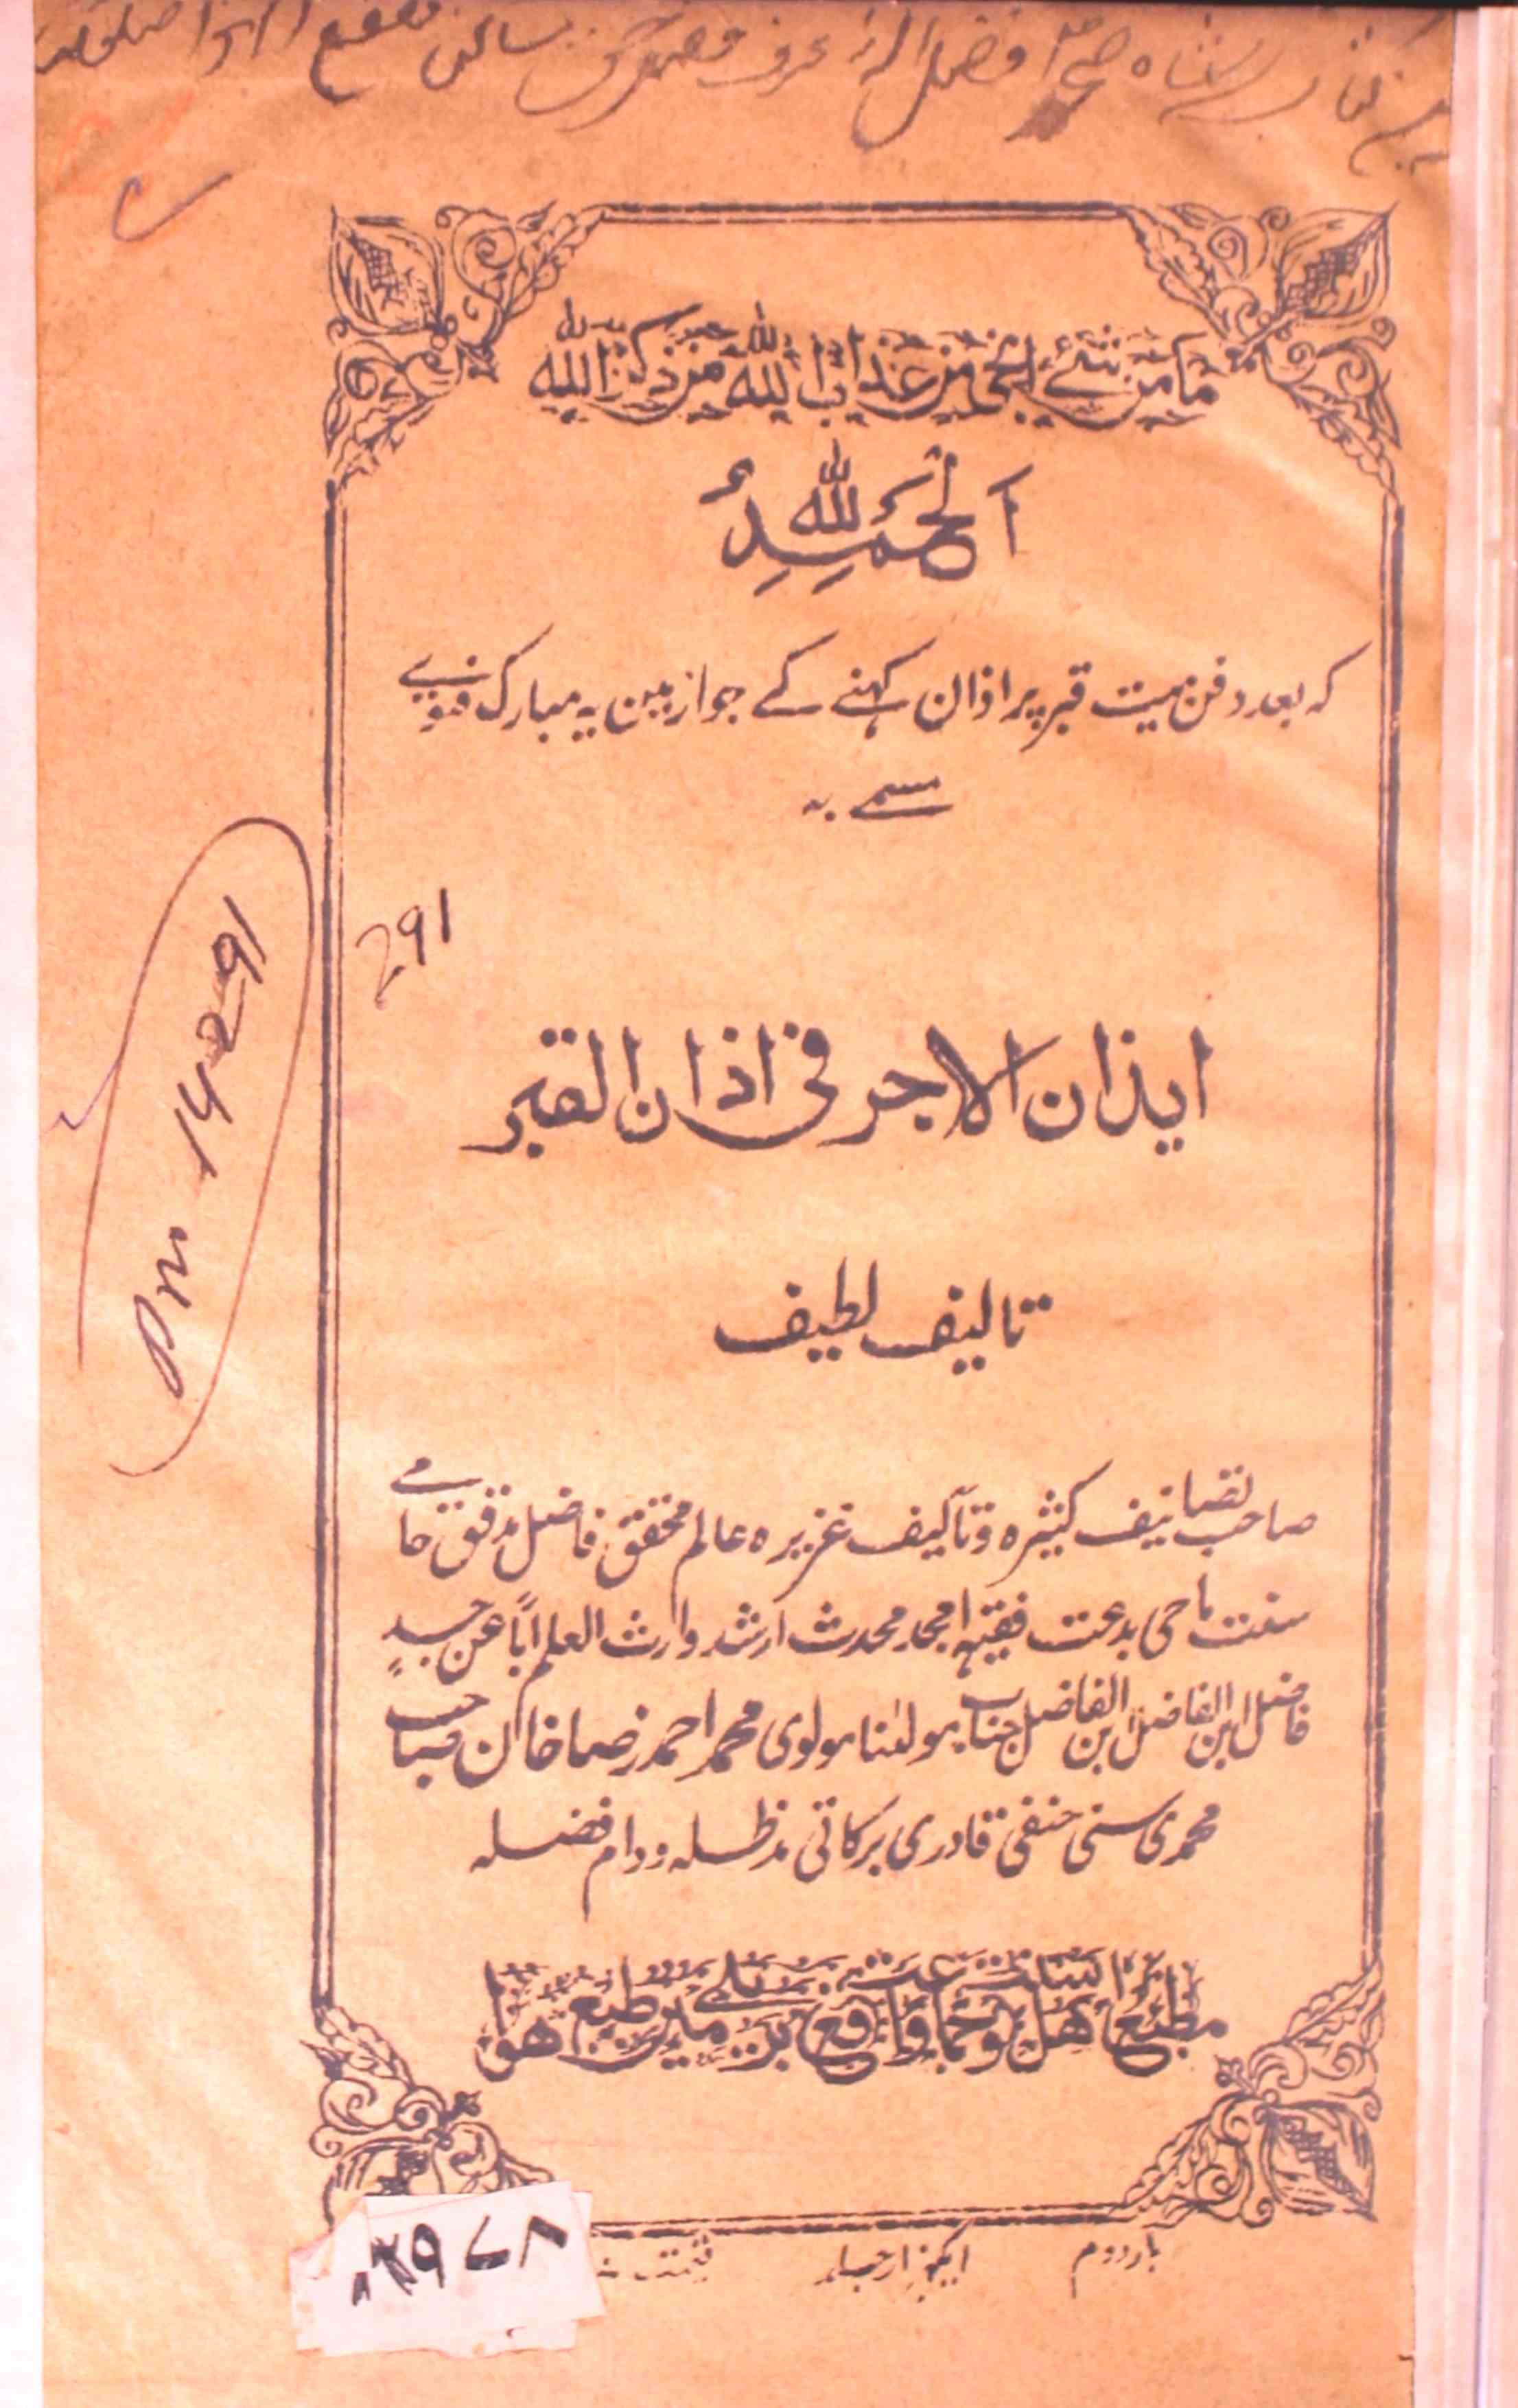 ما من شیء انجی من عذاب الله من ذکر الله
الحمد لله
کہ بعد دفن میت قبر پر اذان کہنے کے جواز مین یہ مبارک فتوے
مسمے بہ
291
Pm 14291
ایذان الاجر فی اذان القبر
تالیف لطیف
صاحب تصانیف کثیرہ و تآلیف غزیرہ عالم محقق فاضل مدقق حامے
سنت ماحی بدعت فقیہ امجد محدث ارشد وارث العلم اباً عن جدٍ
فاضل ابن الفاضل ابن الفاضل جناب مولٰنا مولوی محمد احمد رضا خان صاحب
محمدی سنی حنفی قادری برکاتی مدظلہ و دام فضلہ
مطبع اہل السنت و جماعت واقع بریلی مین طبع ہوا
بار دوم ایکہزار جلد قیمت